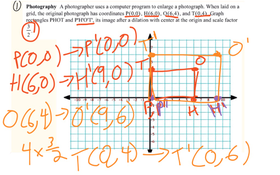 ① Photography A photographer uses a computer program to enlarge a photograph. When laid on a
grid, the original photograph has coordinates P(0,0), H(6,0), O(6,4), and T(0,4). Graph
rectangles PHOT and P'H'O'T', its image after a dilation with center at the origin and scale factor
3/2
P(0,0) → P'(0,0)
H(6,0) → H'(9,0)
O(6,4) → O'(9,6)
4 × 3/2
T(0,4) → T'(0,6)
T'
O'
T
O
P
P'
H
H'